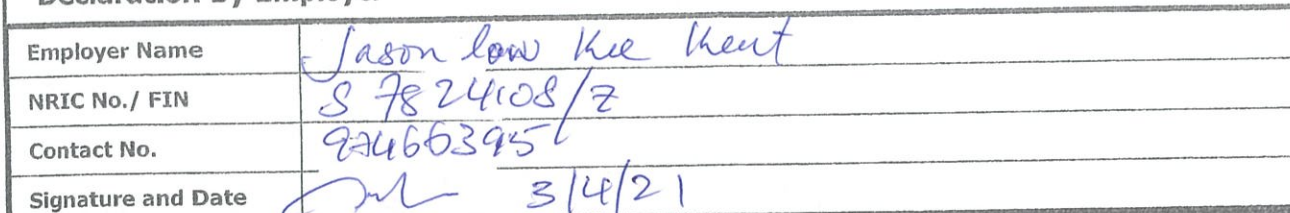 Employer Name Jason low Kee Kent
NRIC No./ FIN S 7824108/Z
Contact No. 97466395
Signature and Date 3/4/21